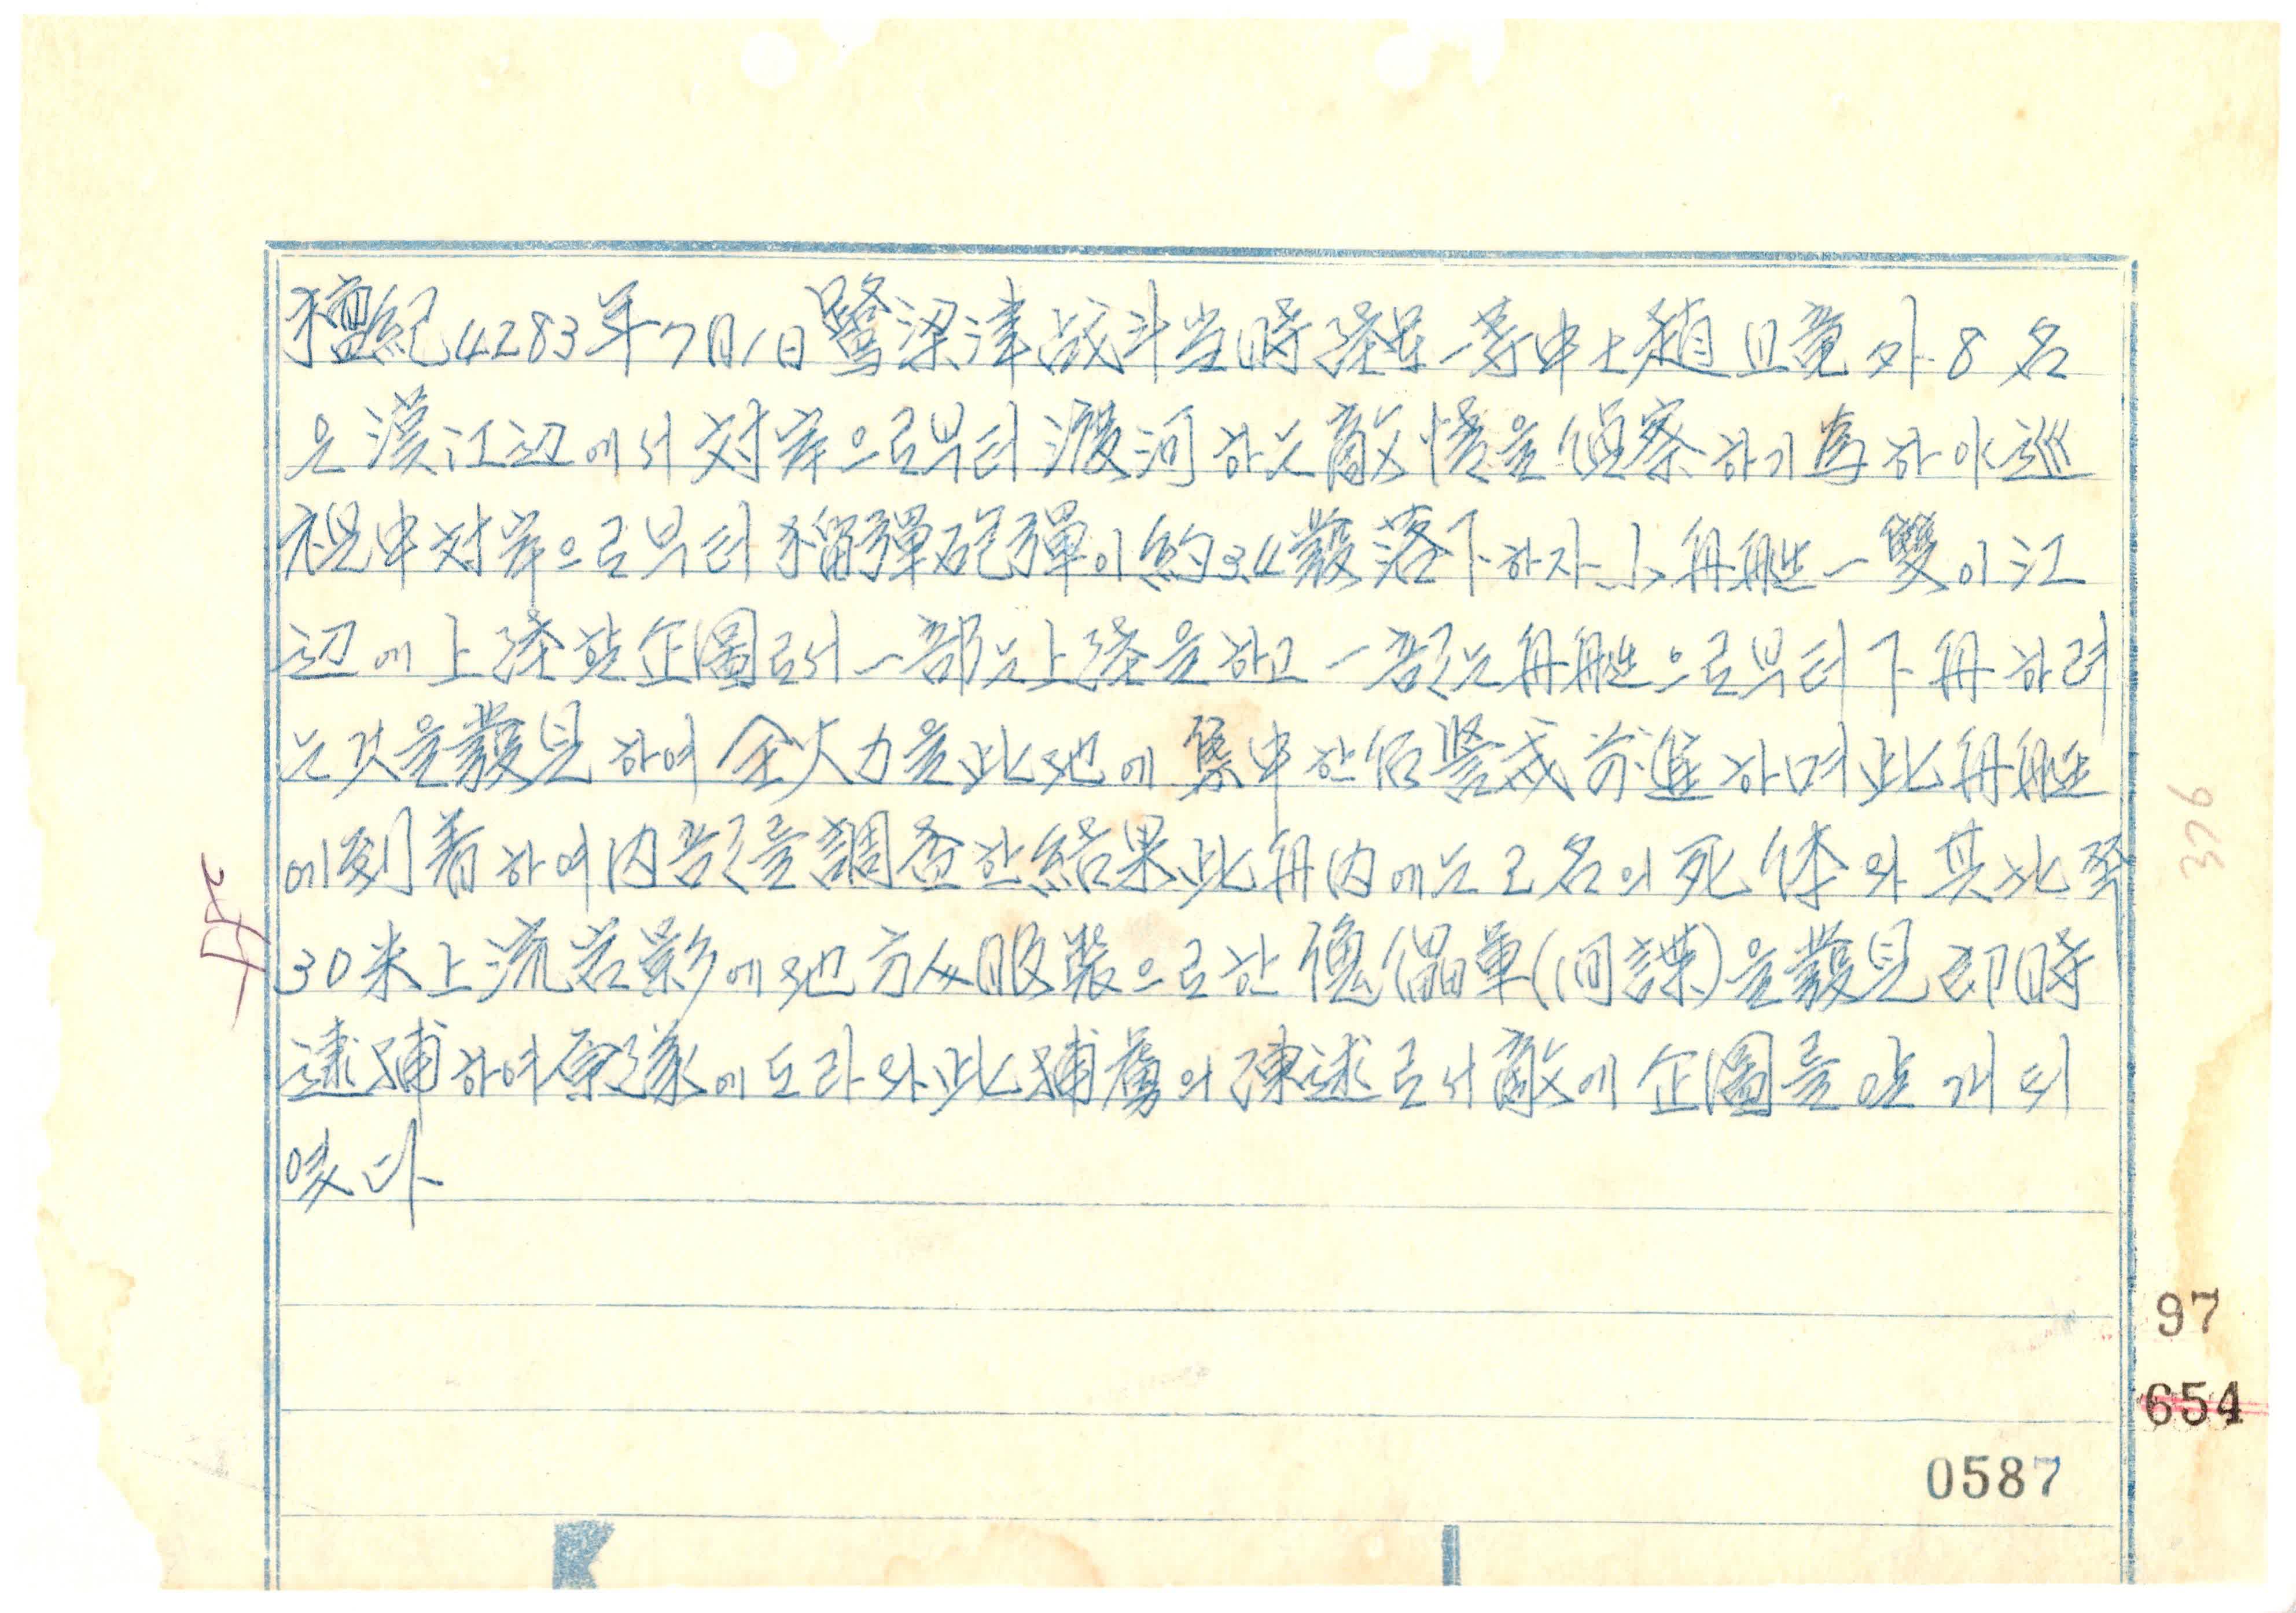 檀紀4283年7月1日鷺梁津战斗当時陸軍一等中士趙且竟外8名
은漢江辺에서対岸으로부터渡河하는敵情을偵察하기爲하야巡
視中対岸으로부터榴彈砲彈이約3.4發落下하자小舟艇一雙이江
辺에上陸할企圖로서一部는上陸을하고一部는舟艇으로부터下舟하려
는것을發見하여全火力을此地에集中한后警戒前進하며此舟艇
에到着하여内部를調査한結果此舟内에는2名의死体와其北쪽
30米上流岩影에地方人服装으로한傀儡軍(间諜)을發見即時
逮捕하여原隊에도라와此捕虜의陳述로서敵에企圖를알게되
였다
376
97
654
0587